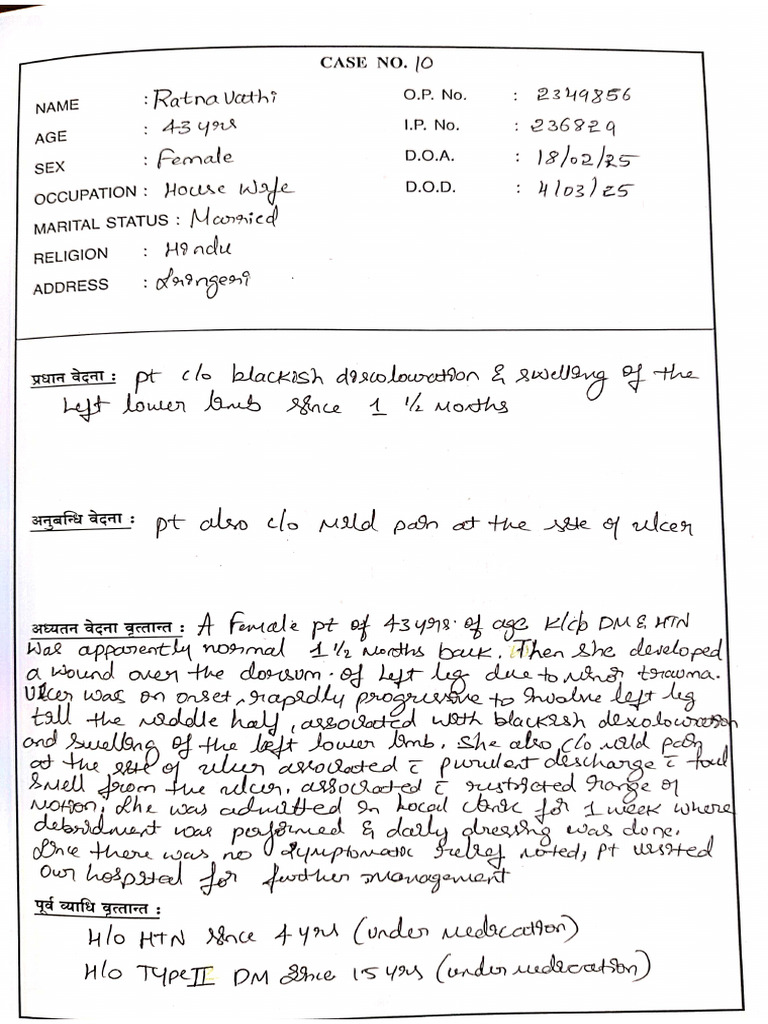 CASE NO. 10
NAME : Ratnavathi O.P. No. : 2349856
AGE : 43 yrs I.P. No. : 236829
SEX : Female D.O.A. : 18/02/25
OCCUPATION : House Wife D.O.D. : 4/03/25
MARITAL STATUS : Married
RELIGION : Hindu
ADDRESS : Sringeri
प्रधान वेदना : pt c/o blackish discolouration & swelling of the
Left lower limb since 1 1/2 Months
अनुबन्धि वेदना : pt also c/o Mild pain at the site of ulcer
अध्यतन वेदना वृत्तान्त : A Female pt of 43 yrs. of age K/c/o DM & HTN
was apparently normal 1 1/2 Months back. Then she developed
a wound over the dorsum of Left leg due to minor trauma.
Ulcer was on onset, rapidly progressive to involve left leg
till the middle half, associated with blackish descolouration
and swelling of the left lower limb. She also c/o mild pain
at the site of ulcer associated c̄ purulent discharge c̄ foul
smell from the ulcer, associated c̄ restricted range of
motion. She was admitted in Local clinic for 1 week where
debridment was performed & daily dressing was done.
Since there was no symptomatic relief noted, pt visited
our hospital for further management
पूर्व व्याधि वृत्तान्त :
H/o HTN since 4 yrs (under medication)
H/o Type II DM since 15 yrs (under medication)